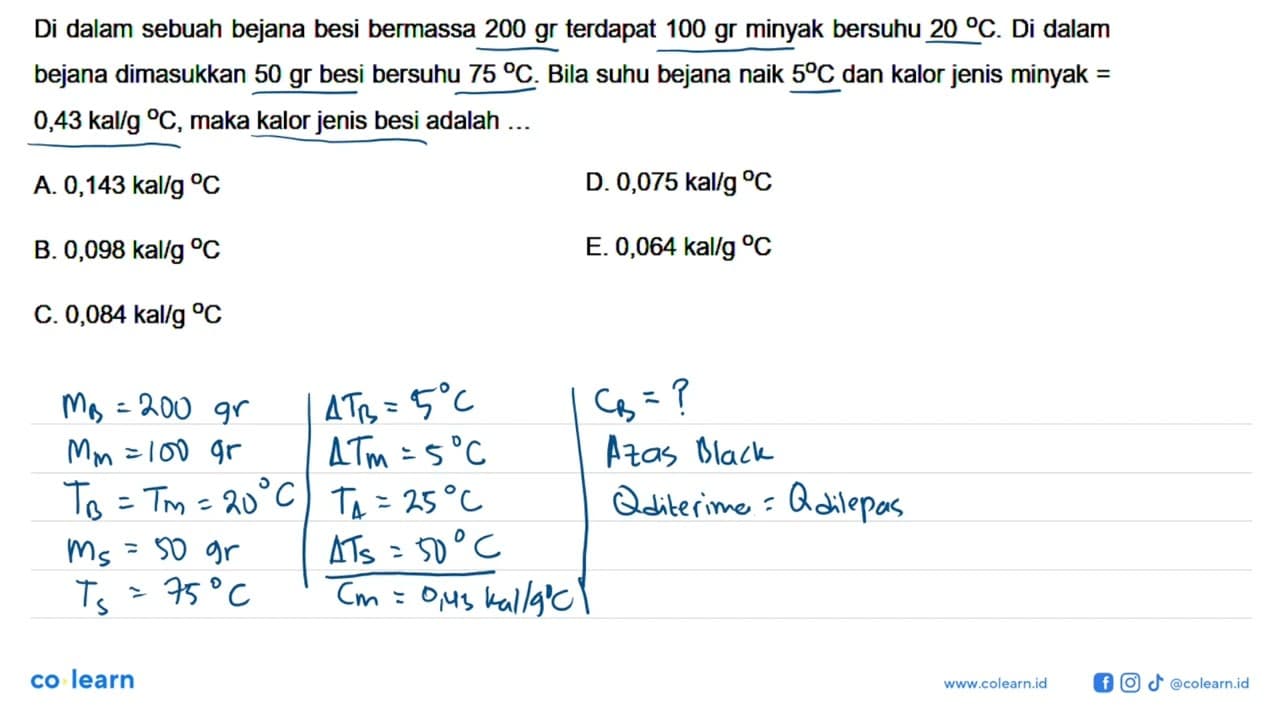 Di dalam sebuah bejana besi bermassa 200 gr terdapat 100 gr minyak bersuhu 20 ⁰C. Di dalam
bejana dimasukkan 50 gr besi bersuhu 75 ⁰C. Bila suhu bejana naik 5⁰C dan kalor jenis minyak =
0,43 kal/g ⁰C, maka kalor jenis besi adalah ...
A. 0,143 kal/g ⁰C
B. 0,098 kal/g ⁰C
C. 0,084 kal/g ⁰C
D. 0,075 kal/g ⁰C
E. 0,064 kal/g ⁰C
MB = 200 gr
Mm = 100 gr
TB = Tm = 20°C
ms = 50 gr
Ts = 75°C
ΔTB = 5°C
ΔTm = 5°C
TA = 25°C
ΔTs = 50°C
Cm = 0,43 kal/g°C
CB = ?
Azas Black
Qditerima = Qdilepas
co learn
www.colearn.id
@colearn.id